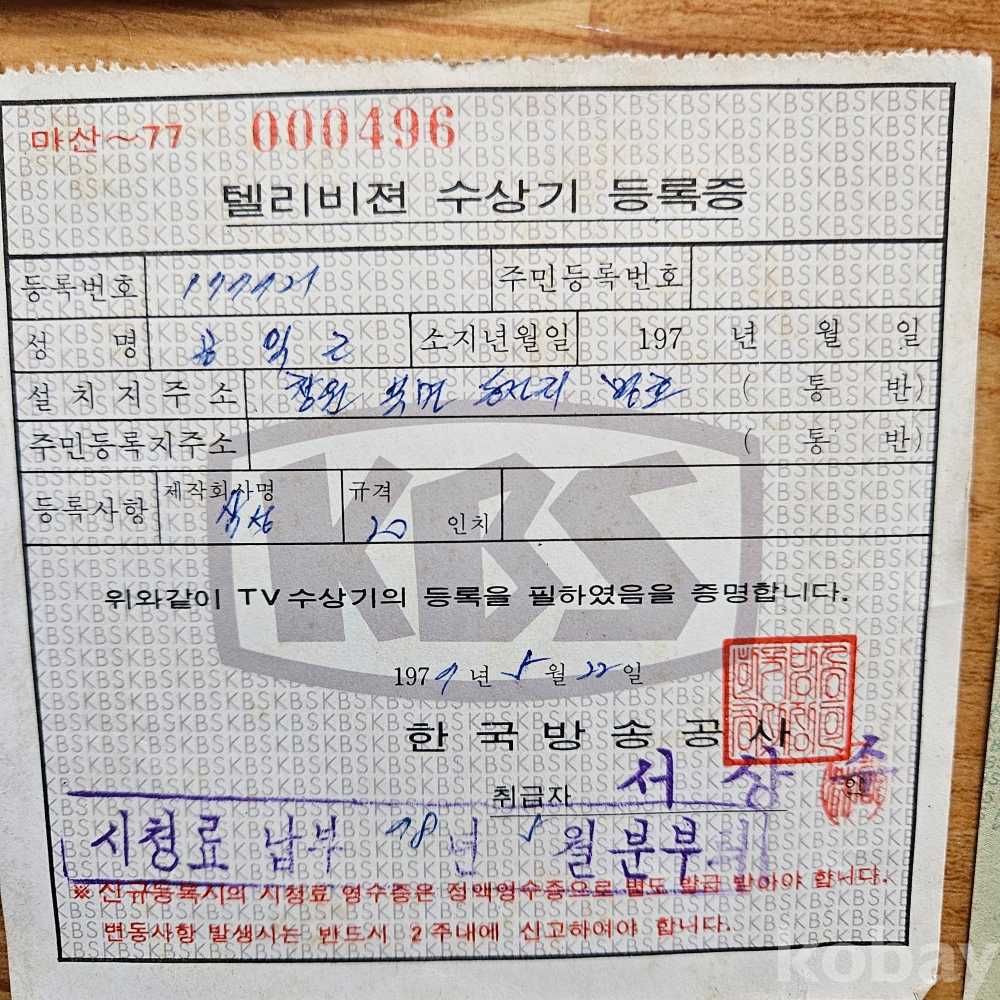 마산~77 000496
텔리비젼 수상기 등록증
등록번호 주민등록번호
성 명 공 익 근 소지년월일 197 년 월 일
설치지주소 창원 북면 ( 통 반)
주민등록지주소 ( 통 반)
등록사항 제작회사명 규격
20 인치
KBS
위와같이 TV수상기의 등록을 필하였음을 증명합니다.
197 년 5 월 22 일
한국방송공사
취급자 서 상 인
시청료 납부 78년 5월분부터
※ 신규등록시의 시청료 영수증은 정액영수증으로 별도 발급 받아야 합니다.
변동사항 발생시는 반드시 2주내에 신고하여야 합니다.
kobay